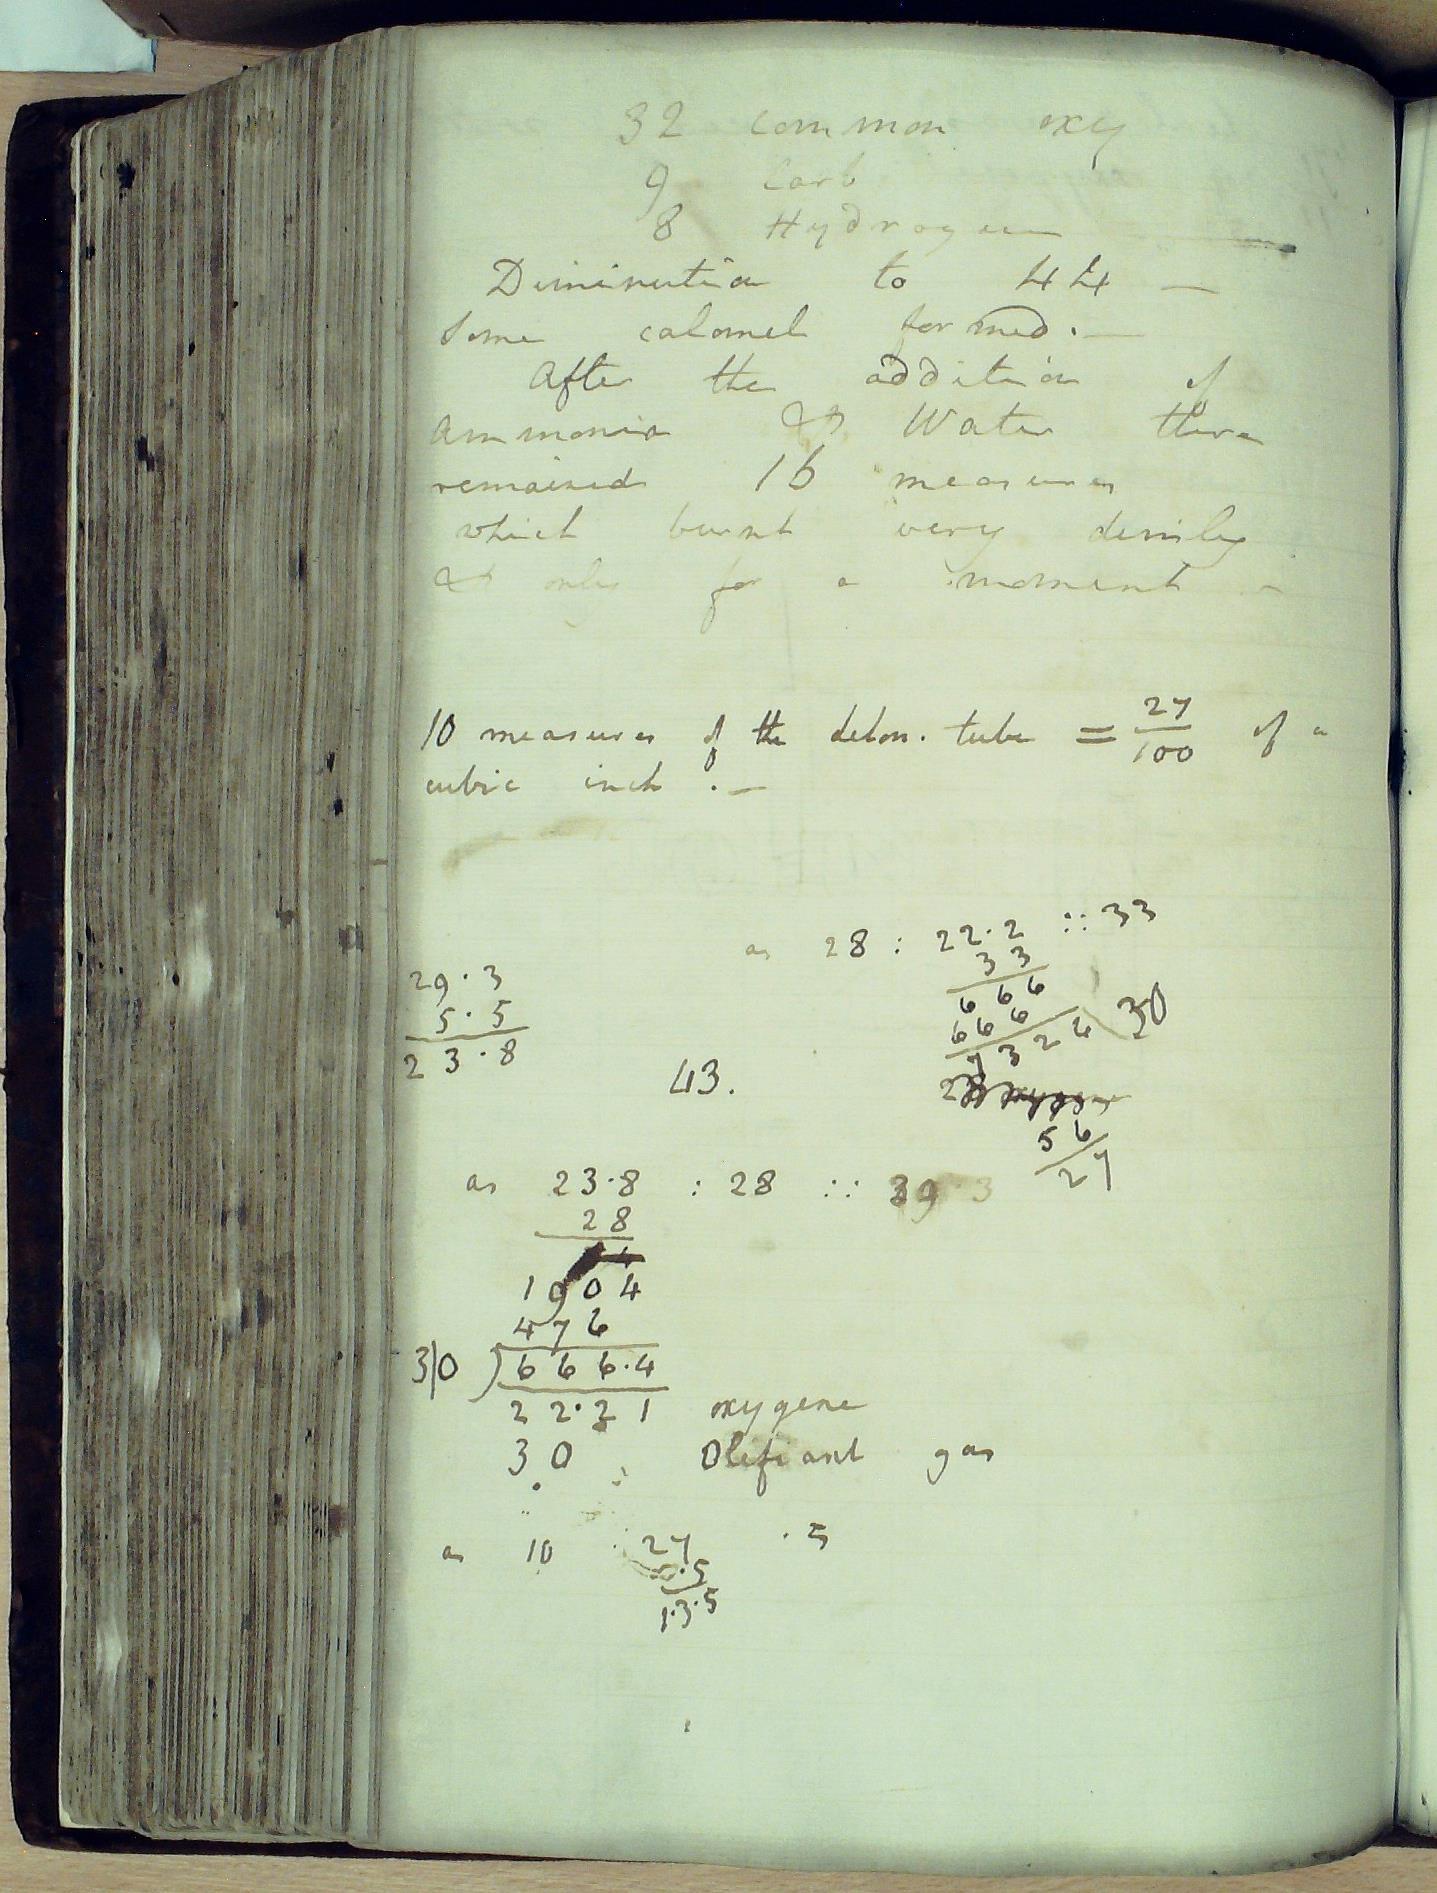 32 common oxy
9 Carb
8 Hydrogen
Diminution to 44 —
some calomel formed. —
After the addition of
Ammonia & Water there
remained 16 measures
which burnt very dimly
& only for a moment —
10 measures of the deton. tube = 27/100 of a
cubic inch . —
as 28 : 22·2 :: 33
33
666
666
7326
30
56
27
29·3
5·5
23·8
43.
as 23·8 : 28 :: 39·3
28
1904
476
3|0 ) 666·4
22·21 oxygene
30 Olefiant gas
as 10 : 27 ·5
·5
1·3·5